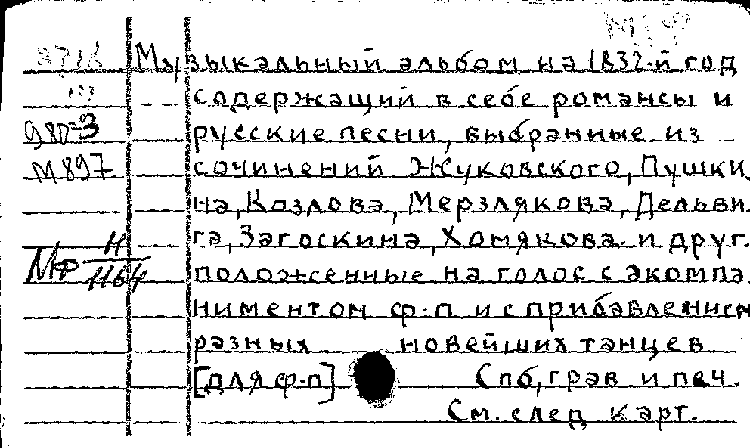 Музыкальный альбом на 1832-й год
содержащий в себе романсы и
980-3 русские песни, выбранные из
М897 сочинений Жуковского, Пушки
на, Козлова, Мерзлякова, Дельви
га, Загоскина, Хомякова и друг.
Мр II/1164 положенные на голос с акомпа
ниментом ф-п и с прибавлением
разных новейших танцев
[для ф-п] Спб, грав и печ.
См. след карт.